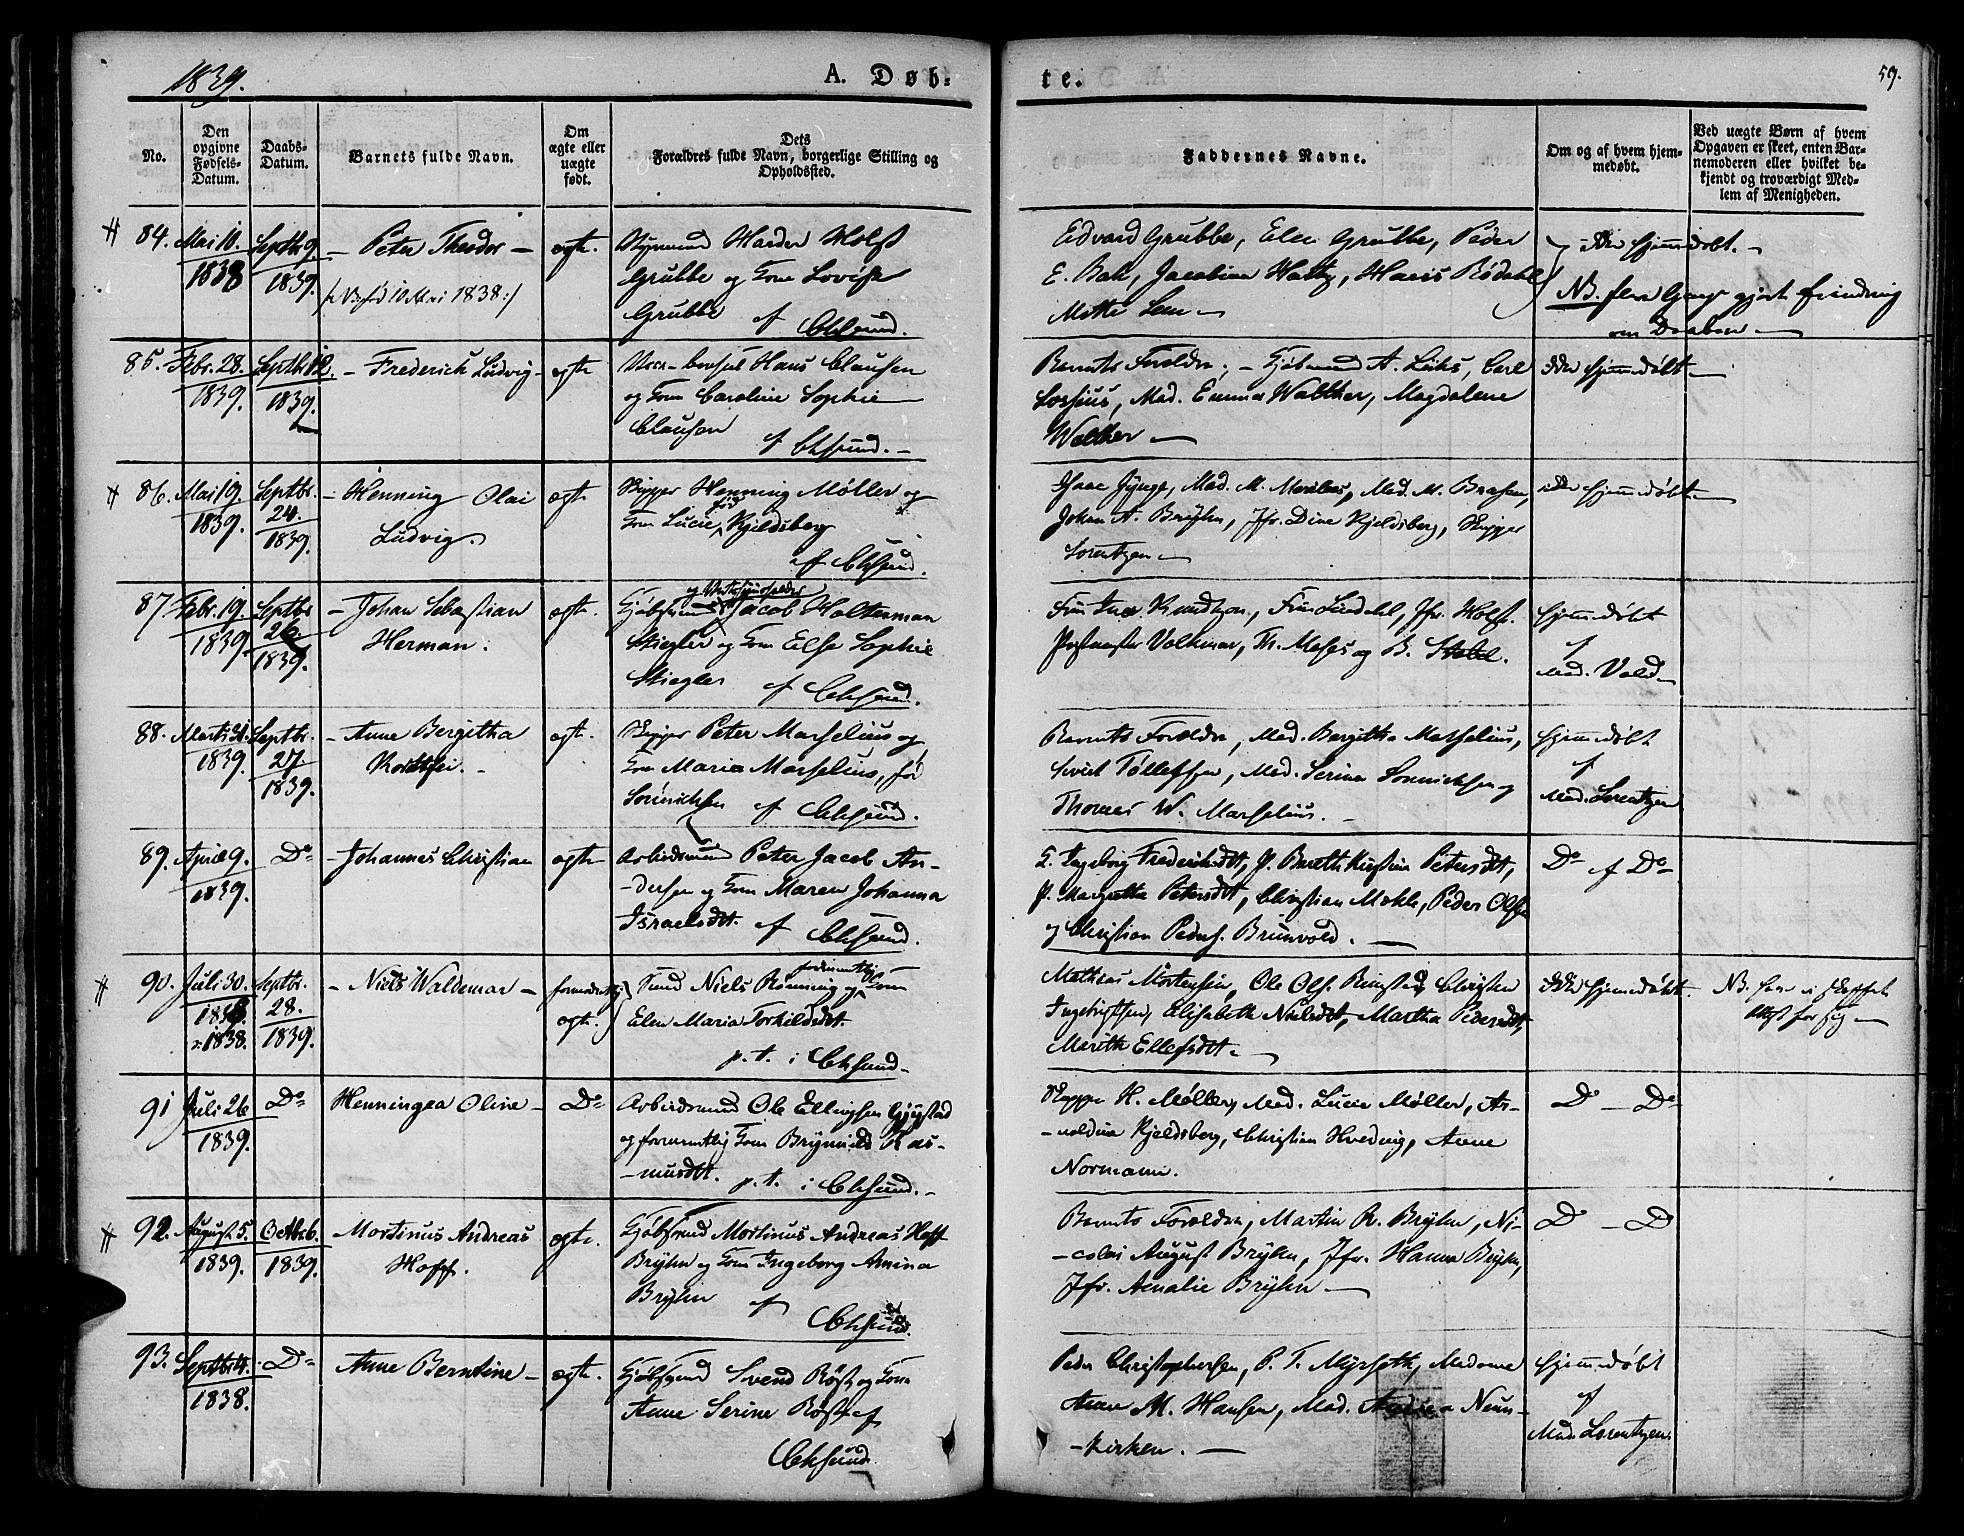 1839.
A. Døb-
te.
59.
No.
Den opgivne Fødsels-Datum.
Daabs-Datum.
Barnets fulde Navn.
Om ægte eller uægte født.
Dets Forældres fulde Navn, borgerlige Stilling og Opholdssted.
Faddernes Navne.
Om og af hvem hjem-
medøbt.
Ved uægte Børn af hvem
Opgaven er skeet, enten Bar-
nemoderen eller hvilket be-
kjendt og troværdigt Med-
lem af Menigheden.
84. Mai 10. 1838 Septbr 9. 1839. – Peter Theodor –
/: NB. fød 10 Mai 1838 :/
ægte.
Harder Holst
Grubbe og Kone Lovise
Grubbe af Chsund.
Edvard Grubbe, Elen Grubbe, Peder
E. Bak, Jacobine Hatty, Hans Rødahl
Mette Lem
ikke hjemmedøbt. –
NB. flere Gange gjort Erindring
om Daaben –
85. Febr. 28. 1839. Septbr 12. 1839. – Frederich Ludvig – ægte
Hans Clausen
og Kone Caroline Sophie
Clausen af Chsund. –
Barnets Forældre, – Kjøbmand A. Lühs, Carl
Lossius, Mad. Emma Walther, Magdalene
Walther –
ikke hjemmedøbt –
86. Mai 19. 1839. Septbr. 24. 1839. – Henning Olai
Ludvig.
ægte
Skipper Henning Møller og
Kone Lucie fød Kjeldsberg
af Chsund.
Isaac Jynge, Mad. M. Mad. M. Brasen,
Johan A. Brÿhn, Jfr. Dine Kjeldsberg, Skipper
Lorentzen –
ikke hjemmedøbt –
87. Febr. 19. 1839. Septbr 26. 1839. – Johan Sebastian
Herman.
ægte.
Kjøbmand og Jacob Holterman
Stiegler og Kone Else Sophie
Stiegler af Chsund.
Fru Knudtzon, Fru Lindahl, Jfr. Holst.
Postmester Volkmar, Th. Moses og B. Stabel.
hjemmedøbt
af
Mad. Vold –
88. Marts 31. 1839. Septbr. 27. 1839. – Anne Bergitha
ægte.
Skipper Peter Marselius og
Kone Maria Marselius, fød
Sønnichsen af Chsund.
Barnets Forældre, Mad. Bergitha Marselius,
Sivert Tøllefsen, Mad. Serina Sønnichsen og
Thomas W. Marselius. –
hjemmedøbt
af
Mad. Lorentzen
89. April 9. 1839. Do – Johannes Christian ægte
Arbeidsmand Peter Jacob An-
-dersen og Kone Maren Johanna
Israelsdt. af Chsund.
Ingeborg Frederiksdt, P. Bereth Kirstine Petersdt,
P. Margretha Petersdt, Christian Mohle, Peder Olsen
og Christian Peders. Brunvold. –
Do af Do
90. Juli 30. 1838 ɔ: 1838. Septbr. 28. 1839. – Niels Waldemar – formentlig
ægte.
Niels Rønning og formentlig Kone
Elen Maria Torkildsdt.
p. t. i Chsund –
Mathias Mortensen, Ole Ols. Rinstad, Christen
Ingebrigtsen, Elisabeth Nielsdt, Martha Pedersdt,
Marith Ellefsdt. –
ikke hjemmedøbt.
NB.
91 Juli 26 1839. Do Henningea Oline – Do
Arbeidsmand Ole Ellingsen Gjygstad
og formentlig Kone Brynnild Ras-
-musdt. p. t. i Chsund. –
Skipper H. Møller, Mad. Lucie Møller, Ar-
-noldine Kjeldsberg, Christian Hveding, Anne
Normann.
Do – Do
92. August 5. 1839. Octbr. 6. 1839. Mortinus Andreas
Hoff.
ægte.
Kjøbmand Mortinus Andreas Hoff
Brÿhn og Kone Ingeborg Amina
Brÿhn af
Chsund.
Barnets Forældre, Martin R. Brÿhn, Ni-
-colai August Brÿhn, Jfr. Hanna Brÿhn,
Jfr. Amalie Brÿhn –
Do – Do
93. Septbr 4. 1838. Do Anne Berntine – ægte.
Kjøbmand Svend Røst og Kone
Anne Serine Røst af
Chsund
Peder Christophersen, P. T. Myrseth, Madame
Anne M. Hansen, Mad. Andrea Neun-
-kirken. –
hjemmedøbt
af
Mad. Lorentzen